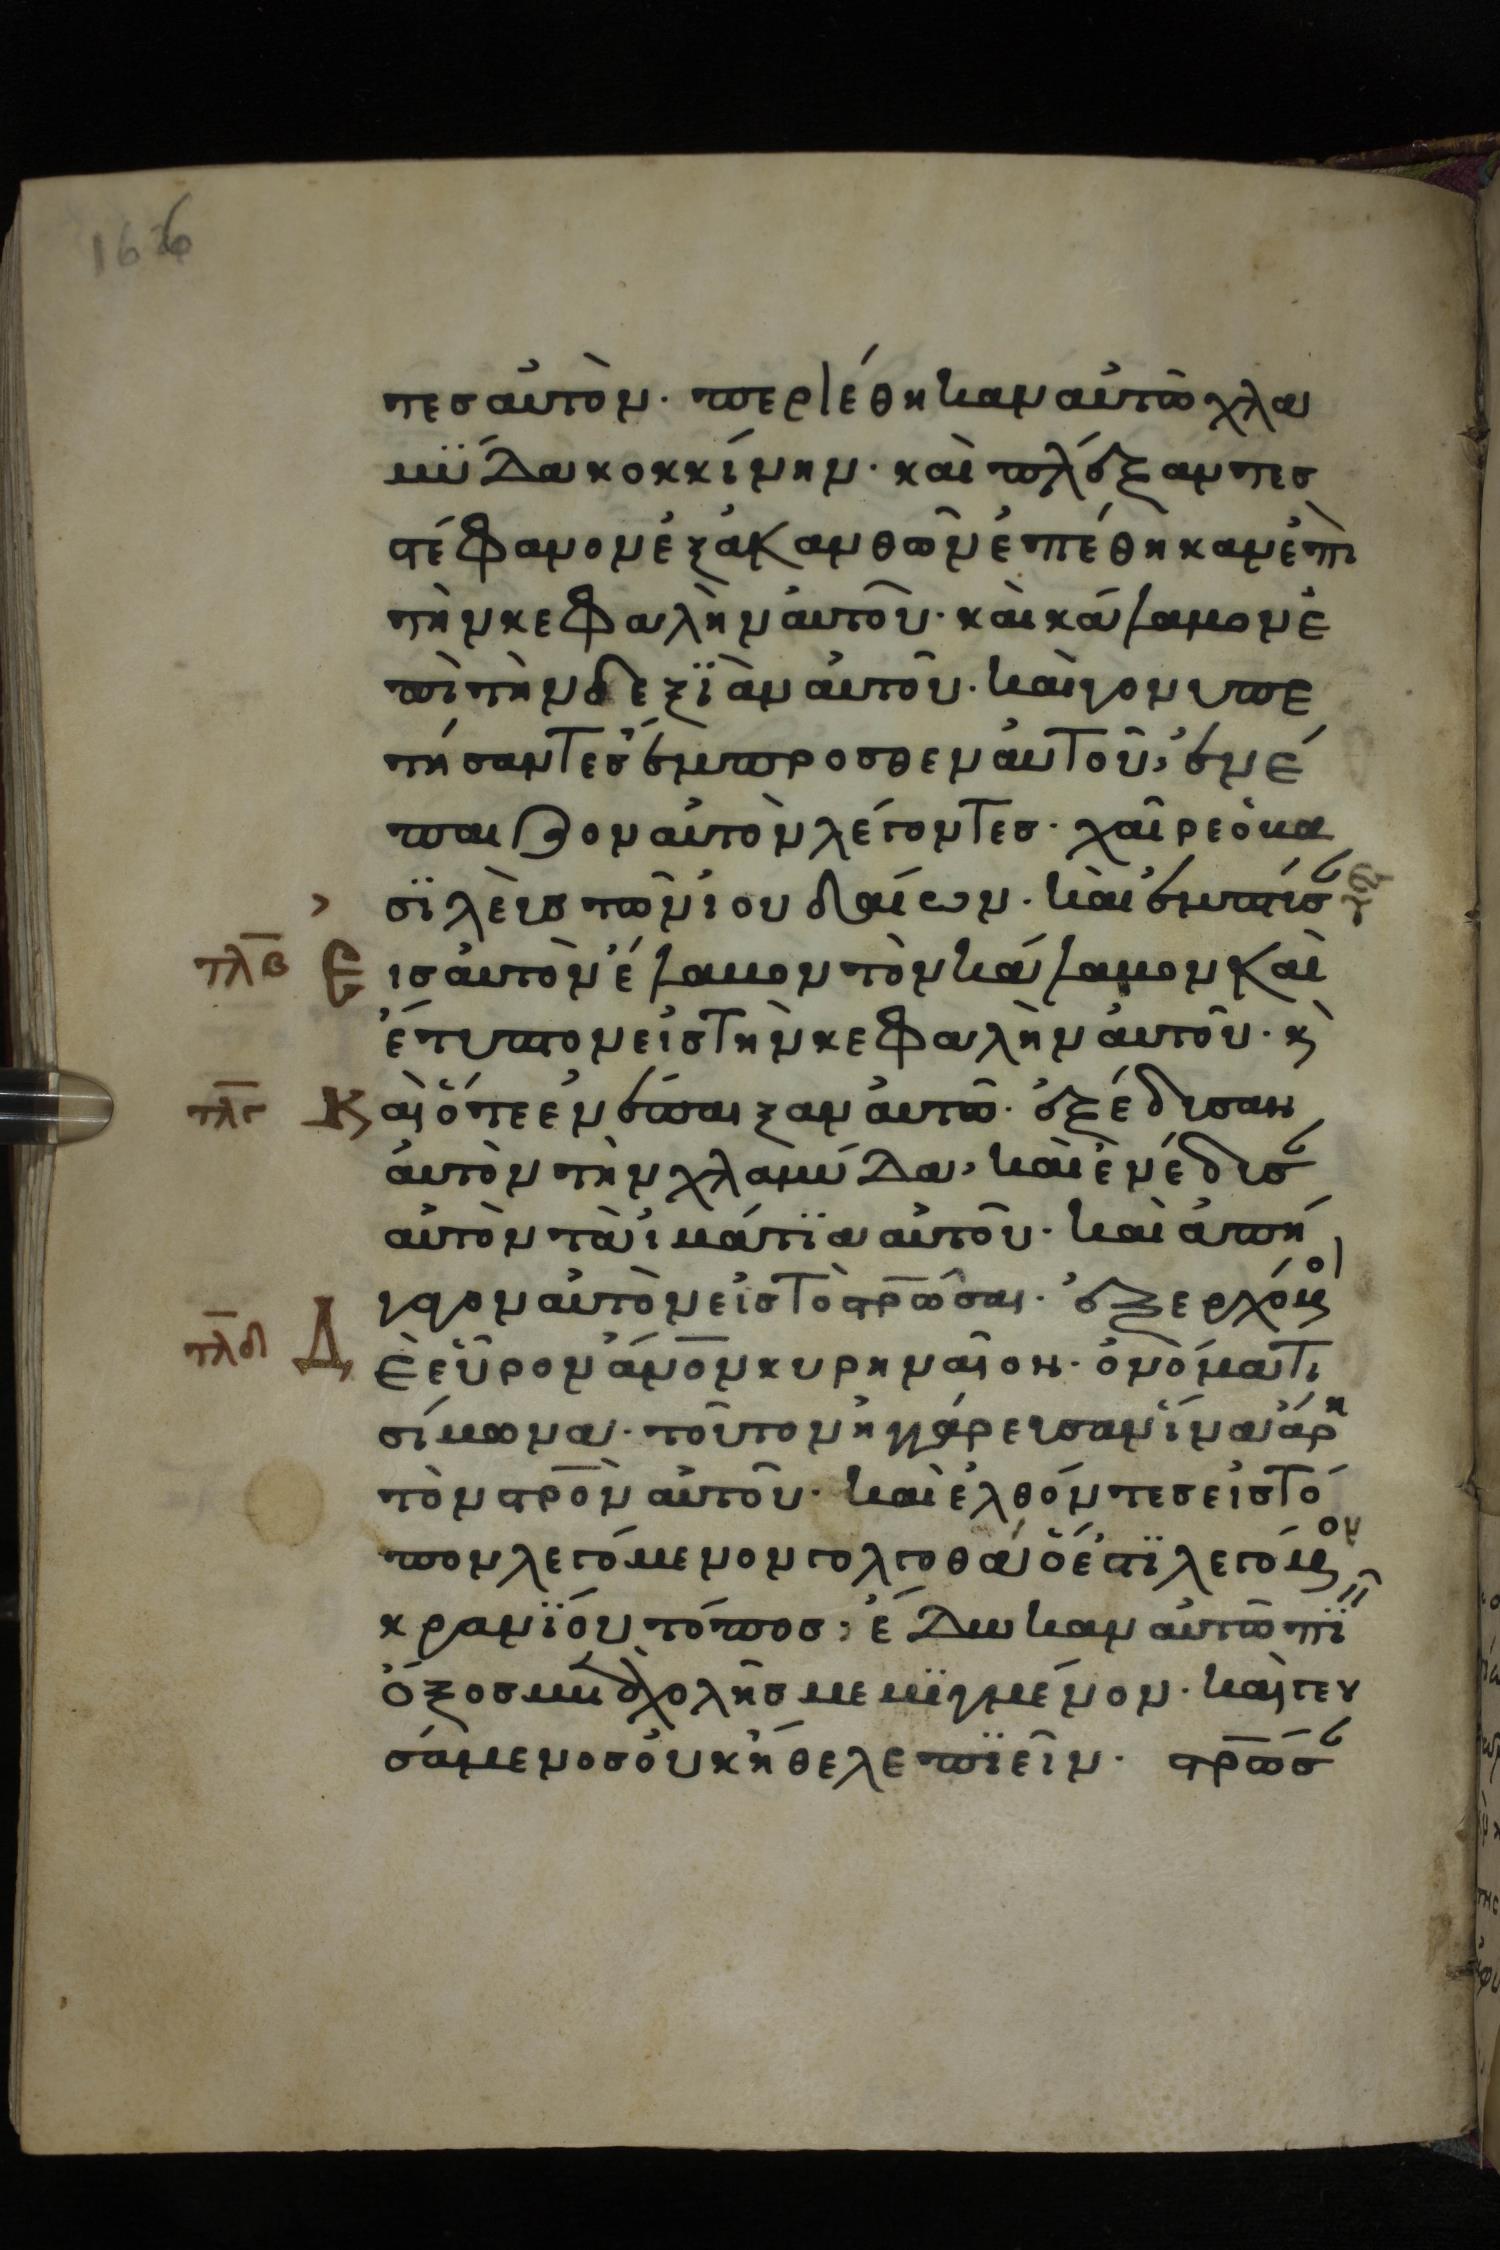 166
τες αὐτὸν· περιέθηκαν αὐτῶ χλα
μΰδα κοκκίνην· καὶ πλέξαντες
στέφανον ἐξ ἀκανθῶν ἐπέθηκαν ἐπὶ
τὴν κεφαλὴν αὐτοῦ· καὶ κάλαμον ἐ
πὶ τὴν δεξϊὰν αὐτοῦ· καὶ γονυπε
τήσαντες ἔμπροσθεν αὐτοῦ, ἐνέ
παιζον αὐτὸν λέγοντες· χαῖρε ὁ βα
σϊλεὺς τῶν ἰουδαίων· καὶ ἐμπτύσ
τλβ Ε ις αὐτὸν ἔλαβον τὸν κάλαμον καὶ
ἔτυπτον εἰς τὴν κεφαλὴν αὐτοῦ· κ
τλγ Κ αὶ ὅτε ἐνέπαιξαν αὐτῶ· ἐξέδυσαν
αὐτὸν τὴν χλαμύδα, καὶ ἐνέδυσ
αὐτὸν τὰ ἱμάτϊα αὐτοῦ· καὶ ἀπή
γαγον αὐτὸν εἰς τὸ στρῶσαι· ἐξερχόμοι
τλδ Δ Ε εὗρον ἄνον κυρηναῖον· ὀνόματι
σίμωνα· τοῦτον ἠγγάρευσαν ἵνα ἄρη
τὸν στρον αὐτοῦ· καὶ ἐλθόντες εἰς τό
πον λεγόμενον γολγοθᾶ ὅ ἐστϊ λεγόμον
κρανϊόυ τόπος· ἔδωκαν αὐτῶ πϊ
ὄξος μετὰ χολῆς μεμϊγμένον· καὶ γευ
σάμενος οὐκ ἤθελε πϊεῖν· στρώσ